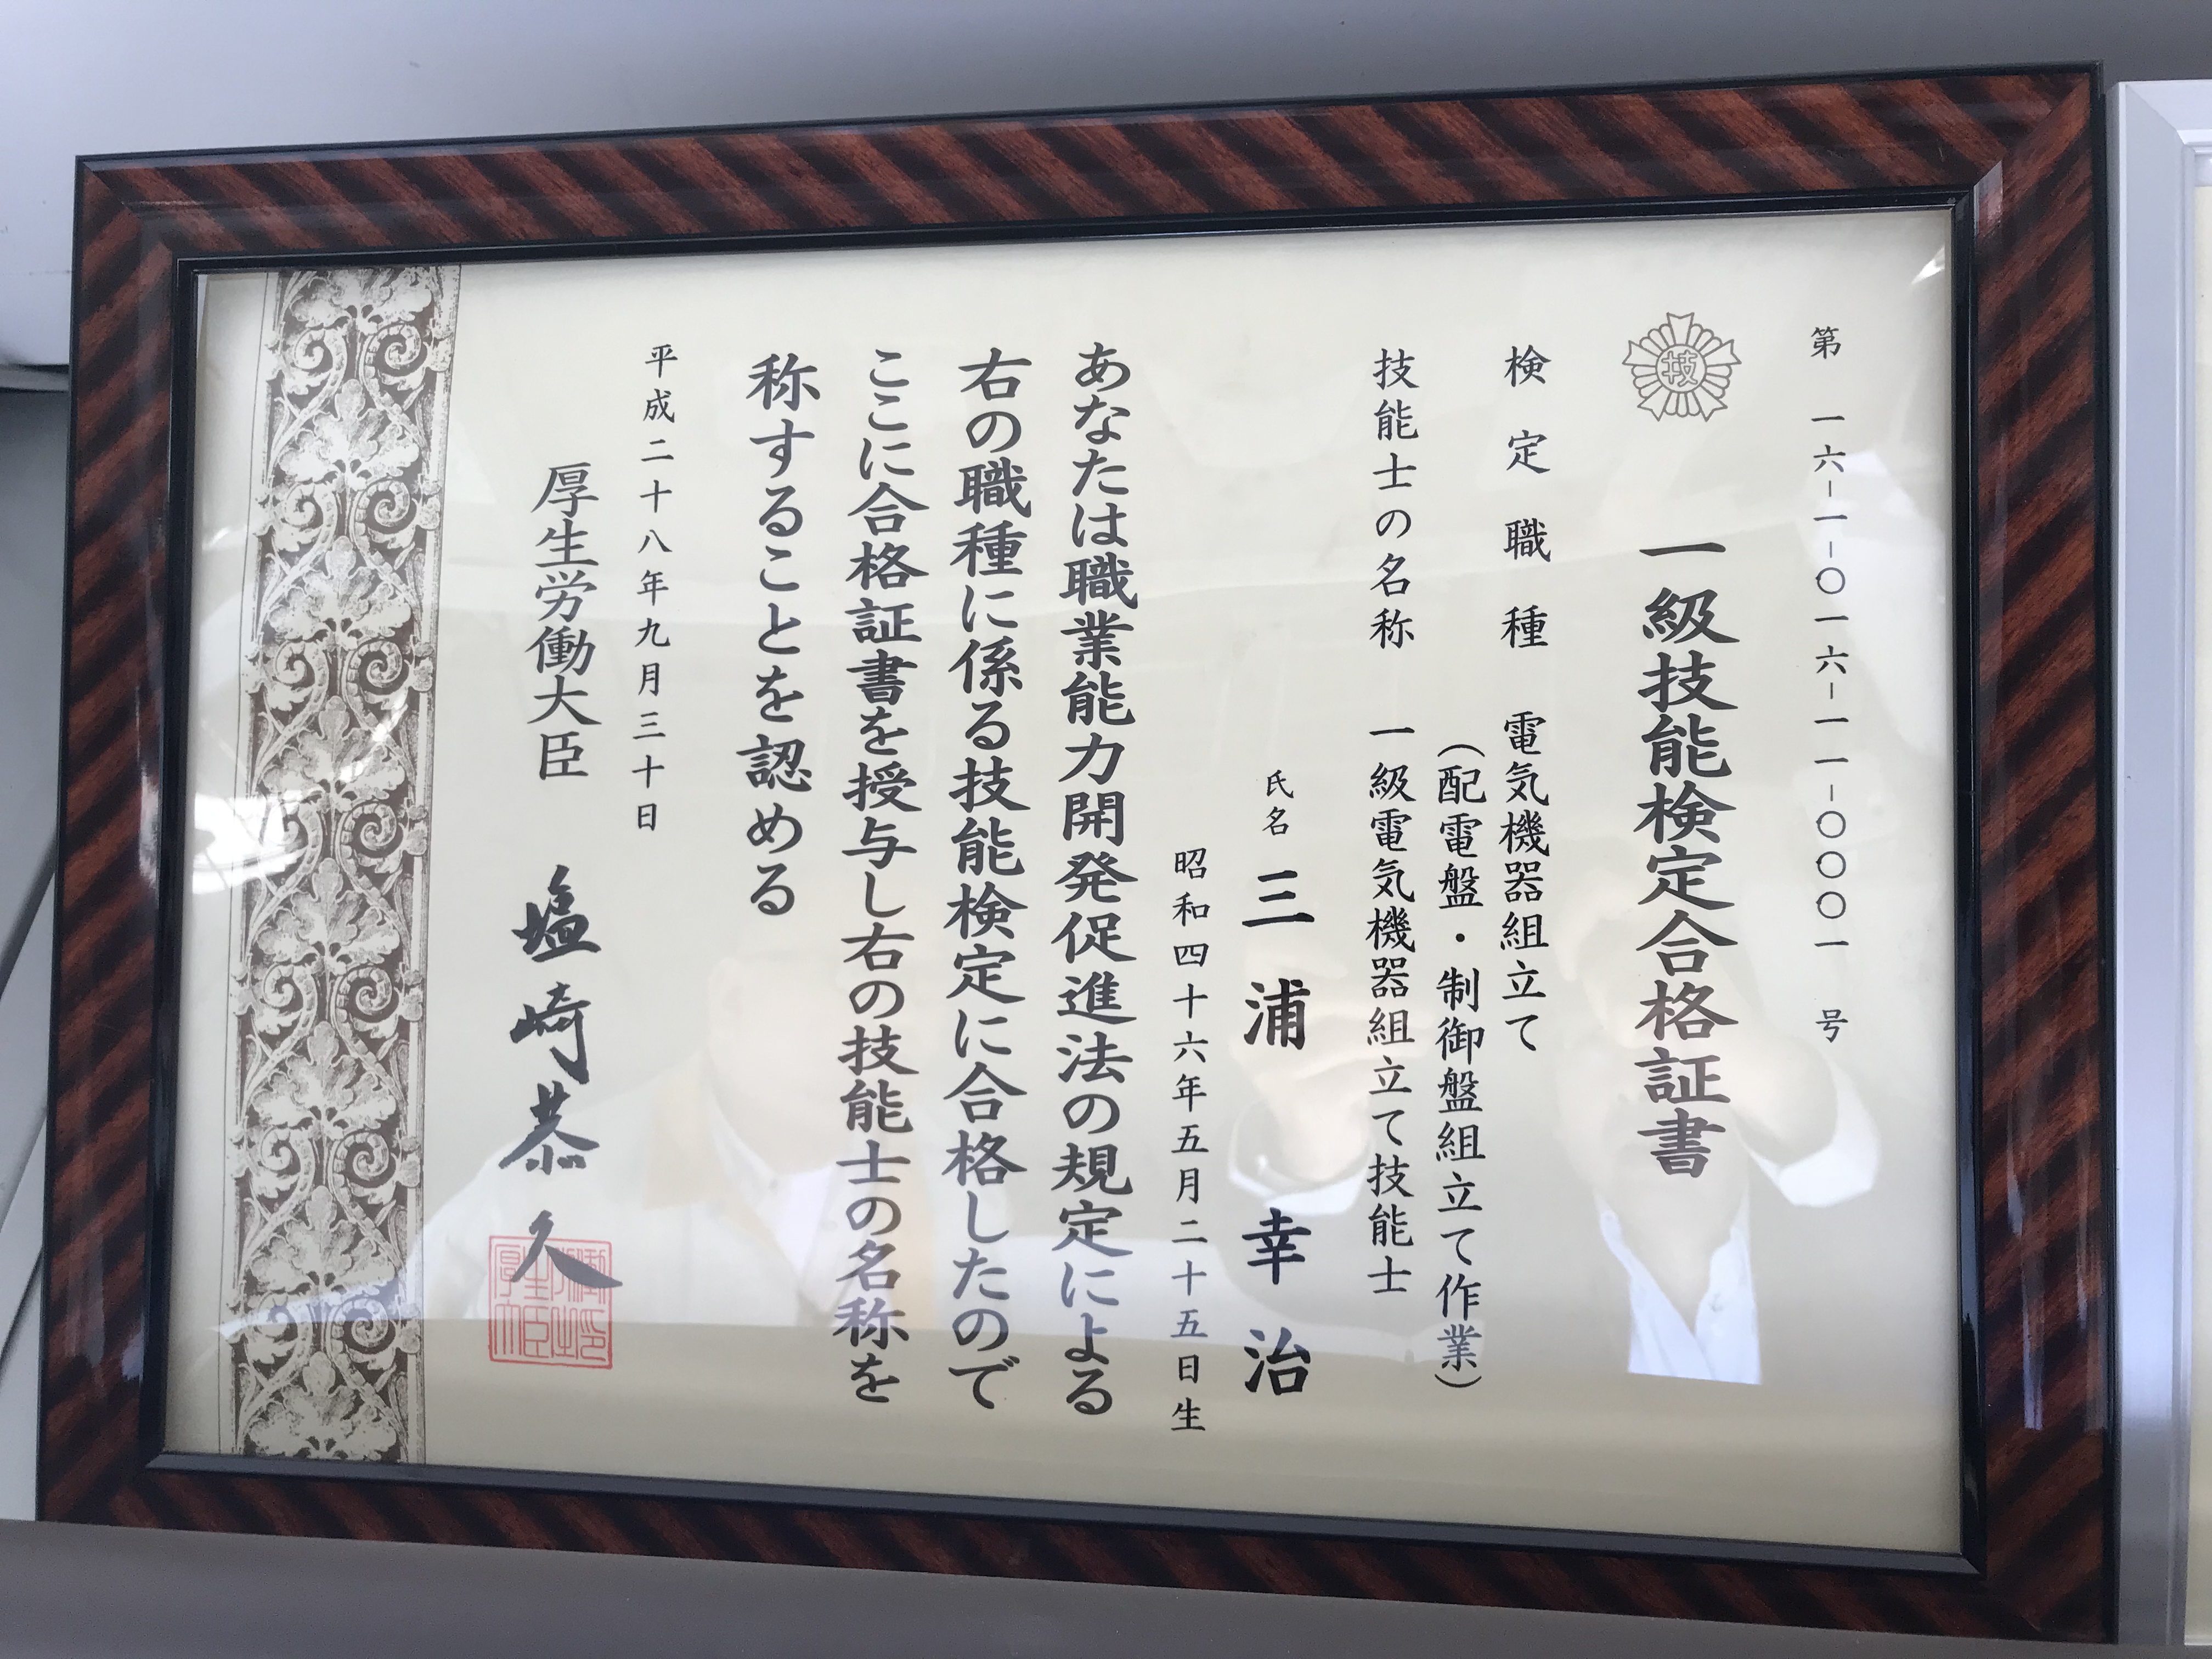 第 一六-一-〇一六-一一-〇〇〇一 号
技
一級技能検定合格証書
検定職種 電気機器組立て
(配電盤・制御盤組立て作業)
技能士の名称 一級電気機器組立て技能士
氏名 三浦幸治
昭和四十六年五月二十五日生
あなたは職業能力開発促進法の規定による
右の職種に係る技能検定に合格したので
ここに合格証書を授与し右の技能士の名称を
称することを認める
平成二十八年九月三十日
厚生労働大臣 塩崎恭久